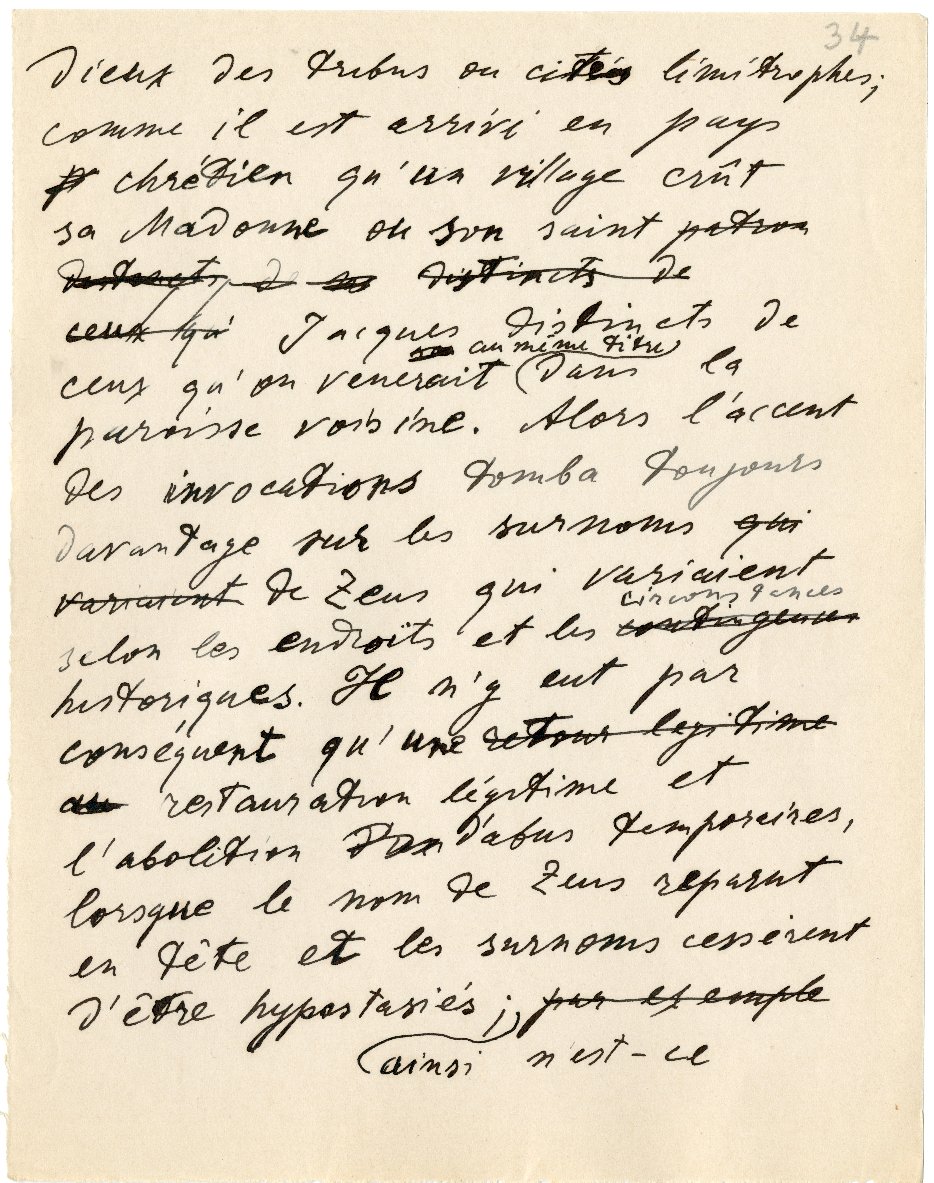 34
dieux des tribus ou cités limitrophes;
comme il est arrivé en pays
chrétien qu'un village crût
sa Madonne ou son saint patron
distincts de distincts de
ceux qu' Jacques distincts de
au même titre
ceux qu'on vénerait dans la
paroisse voisine. Alors l'accent
des invocations tomba toujours
davantage sur les surnoms qui
variaient de Zeus qui variaient
circonstances
selon les endroits et les contingences
historiques. Il n'y eut par
conséquent qu'une retour legitime
au restauration légitime et
l'abolition d'abus temporaires,
lorsque le nom de Zeus reparut
en tête et les surnoms cessèrent
d'être hypostasiés; par exemple
ainsi n'est-ce